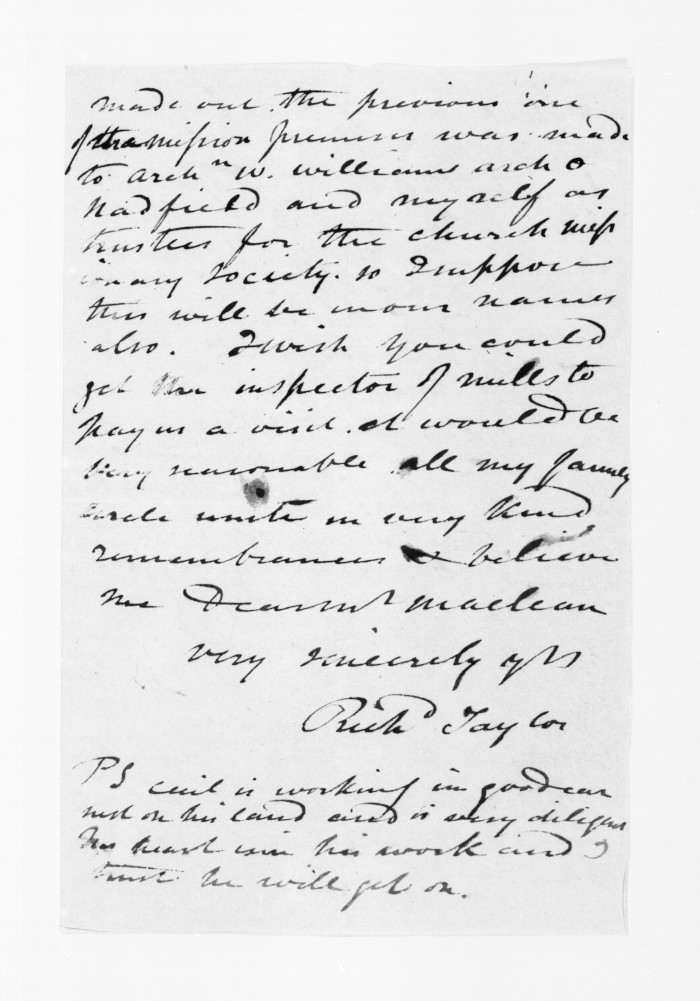 made out the previous one
of the mission premises was made
to archn W. Williams arch
Hadfield and myself as
trustees for the church miss
ionary society. so I suppose
this will be in our names
also. I wish you could
get the inspector of mills to
pay us a visit. it would be
very reasonable all my family
circle unite in very kind
remembrances & believe
me Dear Mr Maclean
very sincerely yrs
Richd Taylor
PS Cecil is working in good ear
nest on his land and is very diligent
his heart is in his work and I
trust he will get on.